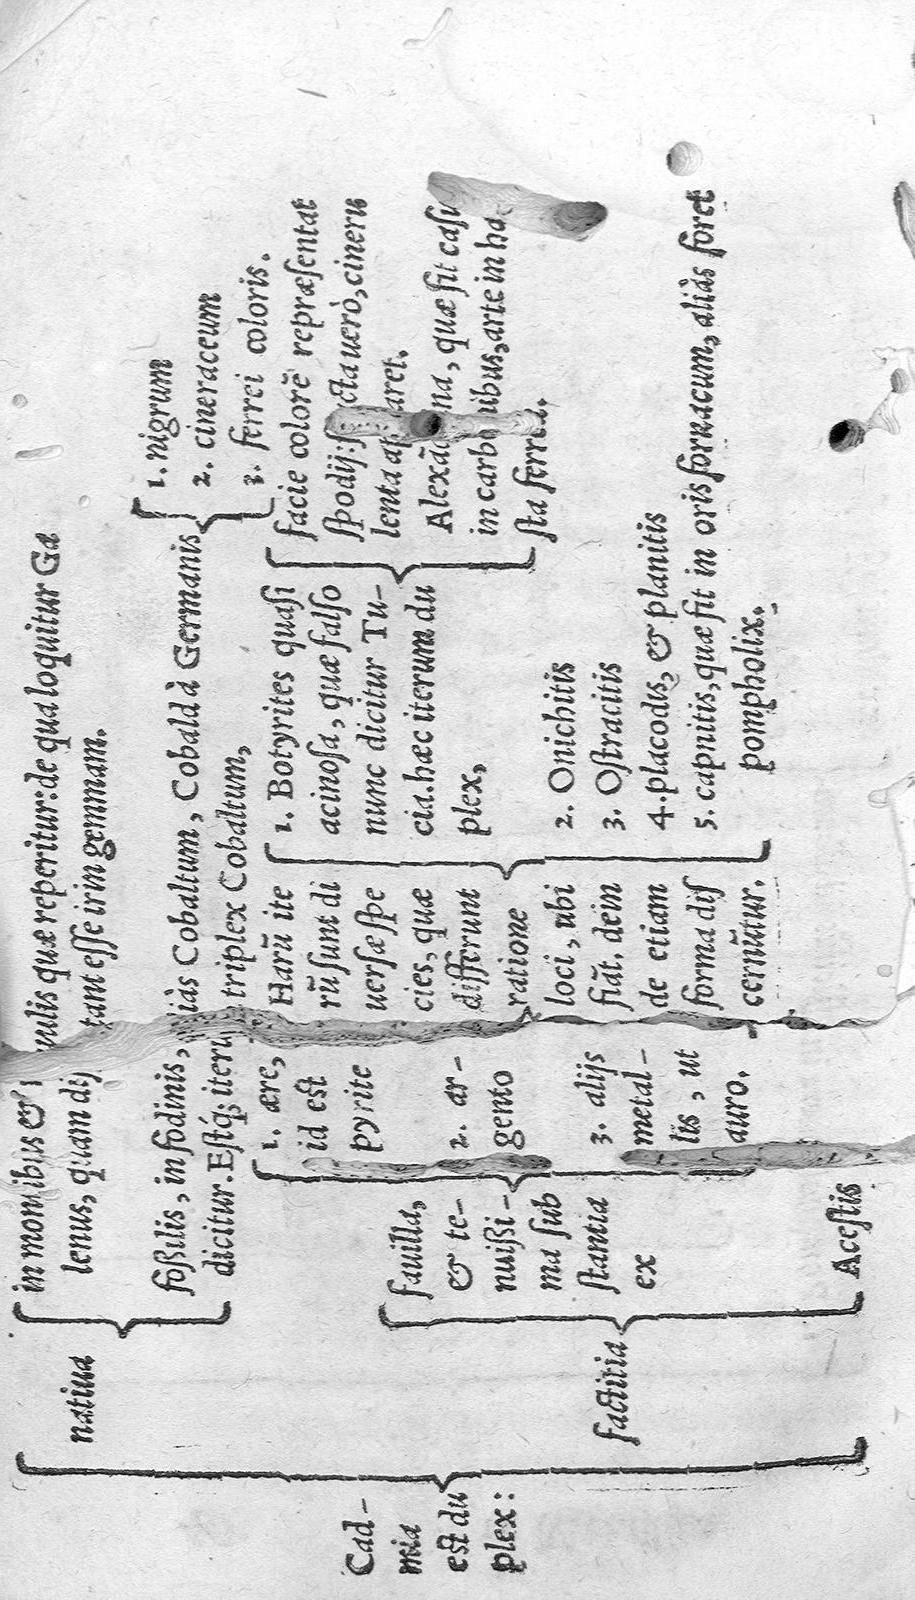 Cad-
mia
est du
plex:
natiua
in montibus &
uulis quæ reperitur: de qua loquitur Ga
lenus, quam di
tant esse irin gemmam.
foßilis, in fodinis,
iàs Cobaltum, Cobald à Germanis
dicitur. Estq́; iteru
triplex Cobaltum,
1. nigrum
2. cineraceum
3. ferrei coloris.
factitia
fauilla,
& te-
nuißi-
ma sub
stantia
ex
1. ære,
id est
pyrite
2. ar-
gento
3. alijs
metal-
lis, ut
auro.
Harũ ite
rũ sunt di
uersæ spe
cies, quæ
differunt
ratione
loci, ubi
fiãt. dein
de etiam
forma dis
cernũtur.
1. Botyrites quasi
acinosa, quæ falso
nunc dicitur Tu-
cia. hæc iterum du
plex,
facie colorẽ repræsentat
spodij: cta uerò, cineru
lenta aret.
Alexã na, quæ fit casu
in carb ibus, arte in ha
sta ferrea.
2. Onichitis
3. Ostracitis
4. placodis, & planitis
5. capnitis, quæ fit in oris fornacum, aliàs foret
pompholix.
Acestis